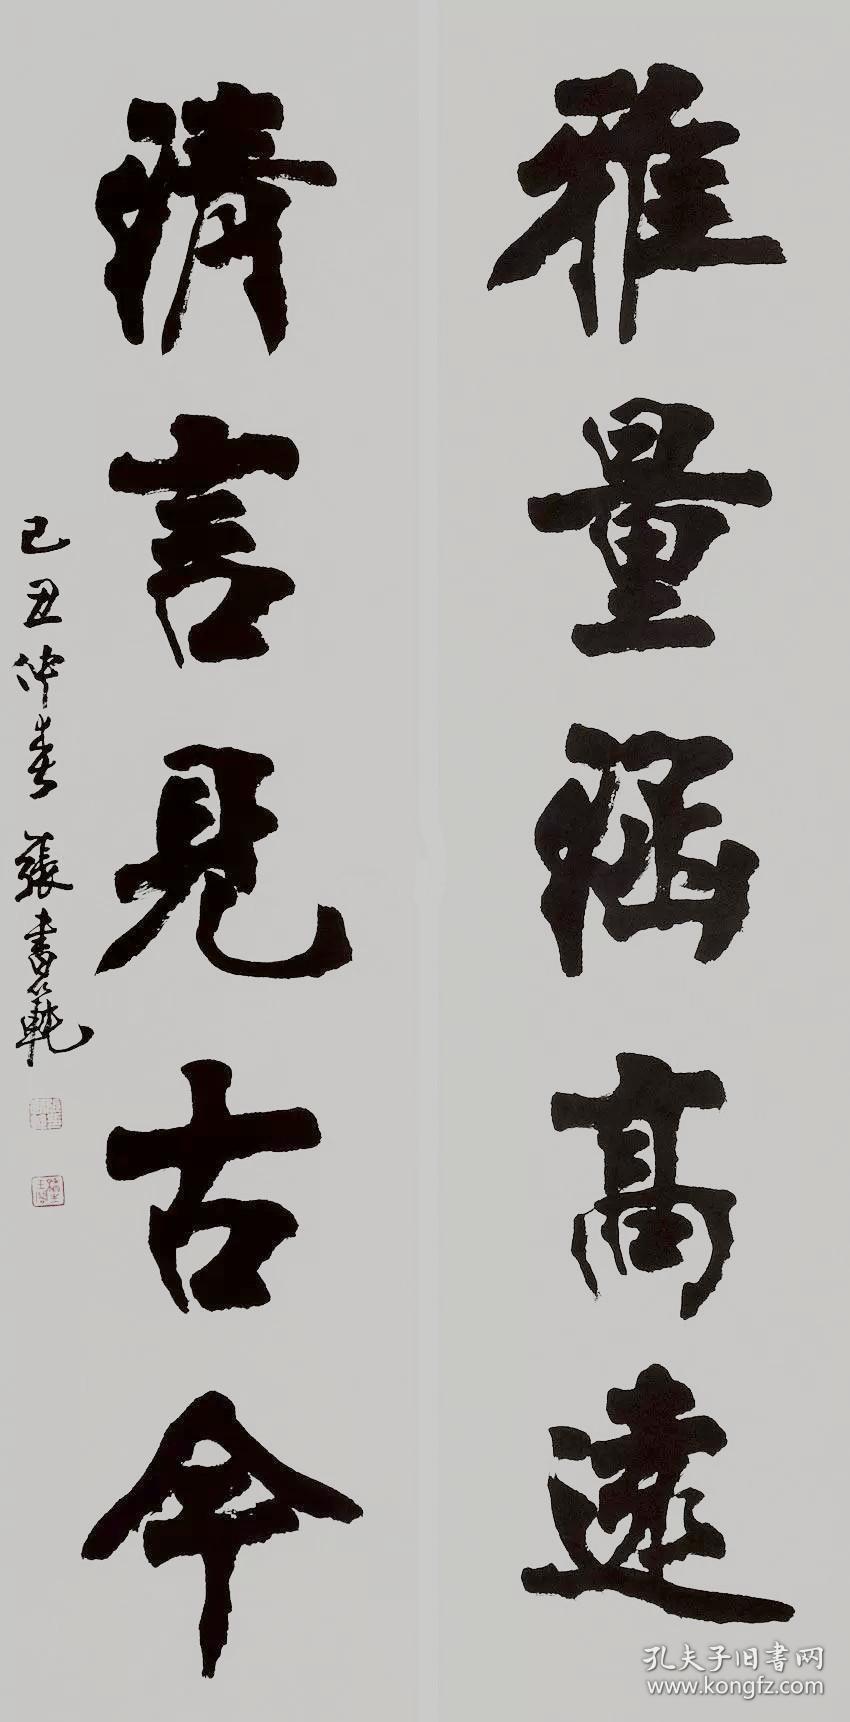 雅量涵高遠
清言見古今
己丑仲春 張書範
孔夫子旧书网
www.kongfz.com